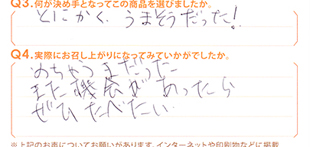 Q3.何が決め手となってこの商品を選びましたか。
とにかく、うまそうだった!
Q4.実際にお召し上がりになってみていかがでしたか。
めちゃうまだった
また機会があったら
ぜひたべたい
※上記のお声についてお願いがあります。インターネットや印刷物などに掲載